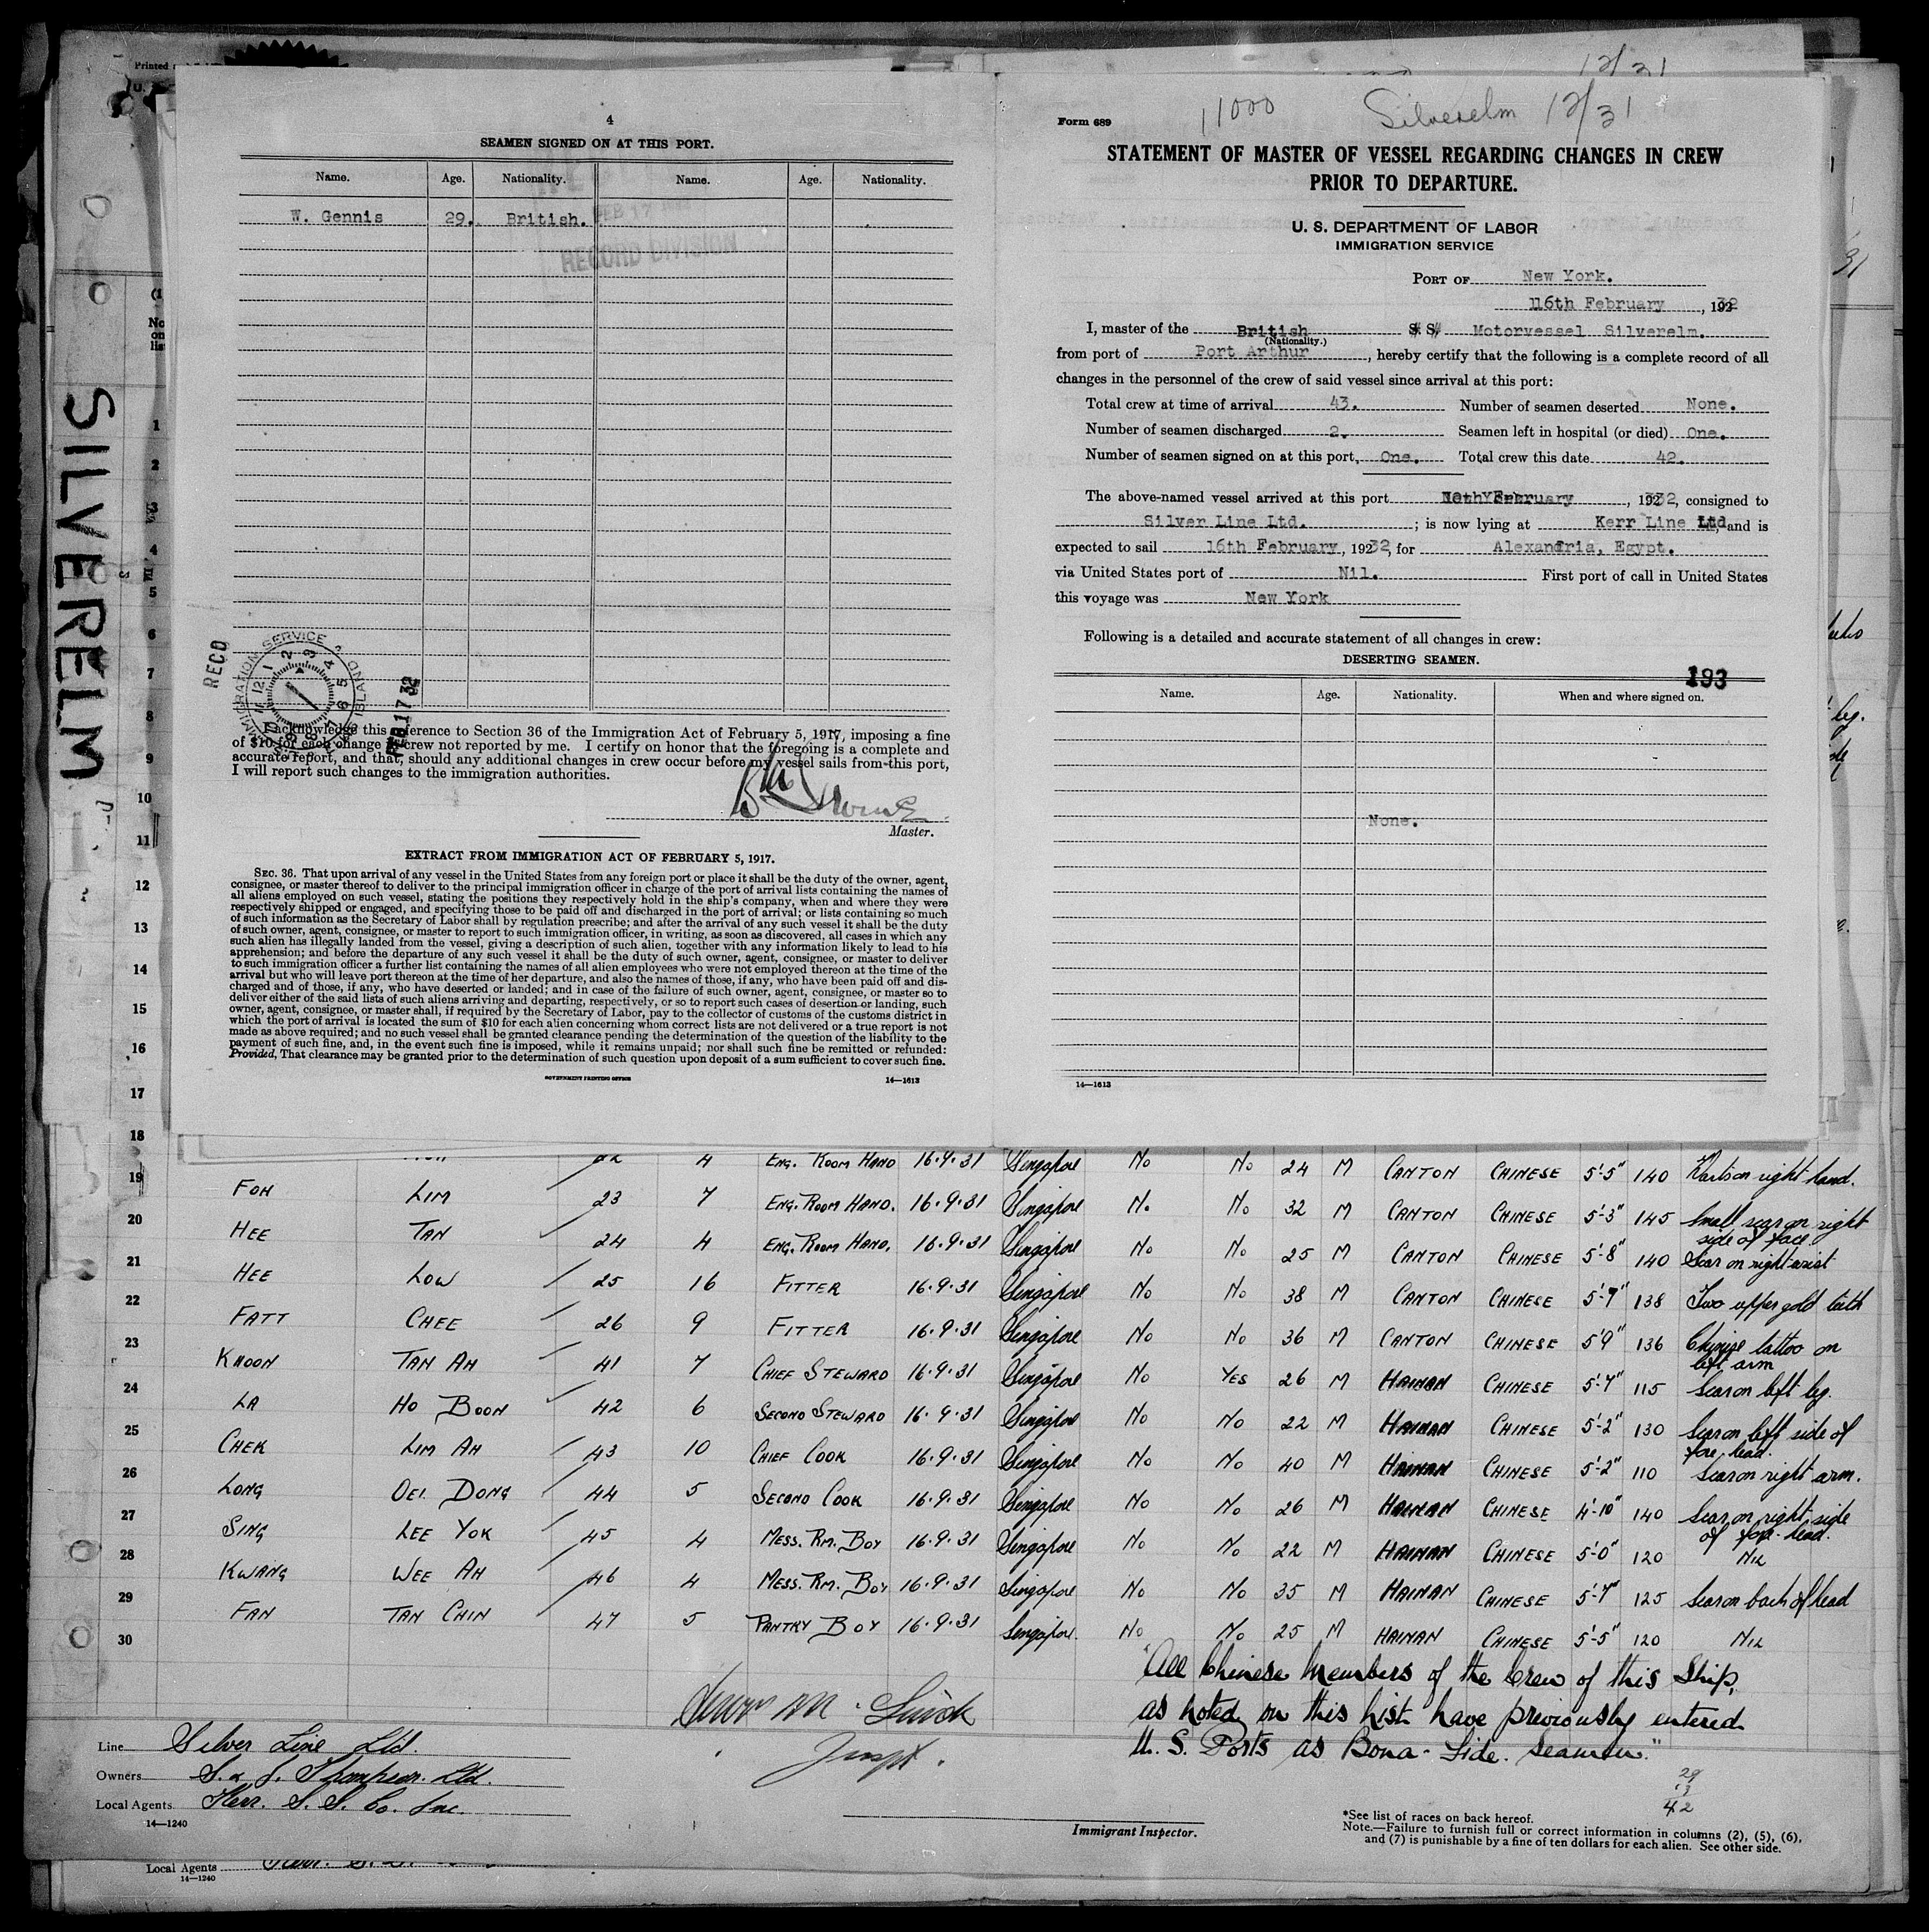 Printed
U.
SILVERELM
12/31
4
SEAMEN SIGNED ON AT THIS PORT.
Name. Age. Nationality. Name. Age. Nationality.
W. Gennis 29. British.
FEB 17
RECORD DIVISION
RECD
IMMIGRATION SERVICE
ELLIS ISLAND
FEB 17 32
I acknowledge this reference to Section 36 of the Immigration Act of February 5, 1917, imposing a fine
of $10 for each change in crew not reported by me. I certify on honor that the foregoing is a complete and
accurate report, and that, should any additional changes in crew occur before my vessel sails from this port,
I will report such changes to the immigration authorities.
Master.
EXTRACT FROM IMMIGRATION ACT OF FEBRUARY 5, 1917.
SEC. 36. That upon arrival of any vessel in the United States from any foreign port or place it shall be the duty of the owner, agent,
consignee, or master thereof to deliver to the principal immigration officer in charge of the port of arrival lists containing the names of
all aliens employed on such vessel, stating the positions they respectively hold in the ship's company, when and where they were
respectively shipped or engaged, and specifying those to be paid off and discharged in the port of arrival; or lists containing so much
of such information as the Secretary of Labor shall by regulation prescribe; and after the arrival of any such vessel it shall be the duty
of such owner, agent, consignee, or master to report to such immigration officer, in writing, as soon as discovered, all cases in which any
such alien has illegally landed from the vessel, giving a description of such alien, together with any information likely to lead to his
apprehension; and before the departure of any such vessel it shall be the duty of such owner, agent, consignee, or master to deliver
to such immigration officer a further list containing the names of all alien employees who were not employed thereon at the time of the
arrival but who will leave port thereon at the time of her departure, and also the names of those, if any, who have been paid off and dis-
charged and of those, if any, who have deserted or landed; and in case of the failure of such owner, agent, consignee, or master so to
deliver either of the said lists of such aliens arriving and departing, respectively, or so to report such cases of desertion or landing, such
owner, agent, consignee, or master shall, if required by the Secretary of Labor, pay to the collector of customs of the customs district in
which the port of arrival is located the sum of $10 for each alien concerning whom correct lists are not delivered or a true report is not
made as above required; and no such vessel shall be granted clearance pending the determination of the question of the liability to the
payment of such fine, and, in the event such fine is imposed, while it remains unpaid; nor shall such fine be remitted or refunded:
Provided, That clearance may be granted prior to the determination of such question upon deposit of a sum sufficient to cover such fine.
GOVERNMENT PRINTING OFFICE 14—1613
Form 689
11000 Silverelm 12/31
STATEMENT OF MASTER OF VESSEL REGARDING CHANGES IN CREW
PRIOR TO DEPARTURE.
U. S. DEPARTMENT OF LABOR
IMMIGRATION SERVICE
PORT OF New York.
16th February, 1932
I, master of the British S. S. Motorvessel Silverelm.
(Nationality.)
from port of Port Arthur, hereby certify that the following is a complete record of all
changes in the personnel of the crew of said vessel since arrival at this port:
Total crew at time of arrival 43. Number of seamen deserted None.
Number of seamen discharged 2. Seamen left in hospital (or died) One.
Number of seamen signed on at this port, One. Total crew this date 42.
The above-named vessel arrived at this port February, 1932, consigned to
Silver Line Ltd.; is now lying at Kerr Line Ltd and is
expected to sail 16th February, 1932, for Alexandria, Egypt.
via United States port of Nil. First port of call in United States
this voyage was New York
Following is a detailed and accurate statement of all changes in crew:
DESERTING SEAMEN. 193
Name. Age. Nationality. When and where signed on.
None.
14—1613
No
on
list
1
2
3
4
5
6
7
8
9
10
11
12
13
14
15
16
17
18
19 22 4 ENG. ROOM HAND 16.9.31 Singapore No No 24 M CANTON CHINESE 5'-5" 140 right hand.
20 FOH LIM 23 7 ENG. ROOM HAND. 16.9.31 Singapore No No 32 M CANTON CHINESE 5'-3" 145 Small scar on right side of face
21 HEE TAN 24 4 ENG. ROOM HAND. 16.9.31 Singapore No No 25 M CANTON CHINESE 5'-8" 140 Scar on right wrist
22 HEE LOW 25 16 FITTER 16.9.31 Singapore No No 38 M CANTON CHINESE 5'-7" 138 Two upper gold teeth
23 FATT CHEE 26 9 FITTER 16.9.31 Singapore No No 36 M CANTON CHINESE 5'9" 136 Chinese tattoo on left arm
24 KHOON TAN AH 41 7 CHIEF STEWARD 16.9.31 Singapore No YES 26 M HAINAN CHINESE 5'-7" 115 Scar on left leg.
25 LA HO BOON 42 6 SECOND STEWARD 16.9.31 Singapore No No 22 M HAINAN CHINESE 5'-2" 130 Scar on left side of fore head.
26 CHEK LIM AH 43 10 CHIEF COOK 16.9.31 Singapore No No 40 M HAINAN CHINESE 5'-2" 110 Scar on right arm.
27 LONG OEI DONG 44 5 SECOND COOK 16.9.31 Singapore No No 26 M HAINAN CHINESE 4'-10" 140 Scar on right side of fore-head.
28 SING LEE YOK 45 4 MESS. RM. BOY 16.9.31 Singapore No No 22 M HAINAN CHINESE 5'-0" 120 NIL
29 KWANG WEE AH 46 4 MESS. RM. BOY 16.9.31 Singapore No No 35 M HAINAN CHINESE 5'-7" 125 Scar on back of head
30 FAN TAN CHIN 47 5 PANTRY BOY 16.9.31 Singapore. No No 25 M HAINAN CHINESE 5'-5" 120 NIL
"All Chinese Members of the Crew of this Ship,
as noted on this list have previously entered
U. S. Ports as Bona-Fide. Seamen."
29
13
42
Line Silver Line Ltd.
Owners S. & J. Thompson. Ltd.
Local Agents Kerr. S. S. Co. Inc.
14—1240
Immigrant Inspector.
*See list of races on back hereof.
Note.—Failure to furnish full or correct information in columns (2), (5), (6),
and (7) is punishable by a fine of ten dollars for each alien. See other side.
Local Agents
14—1240